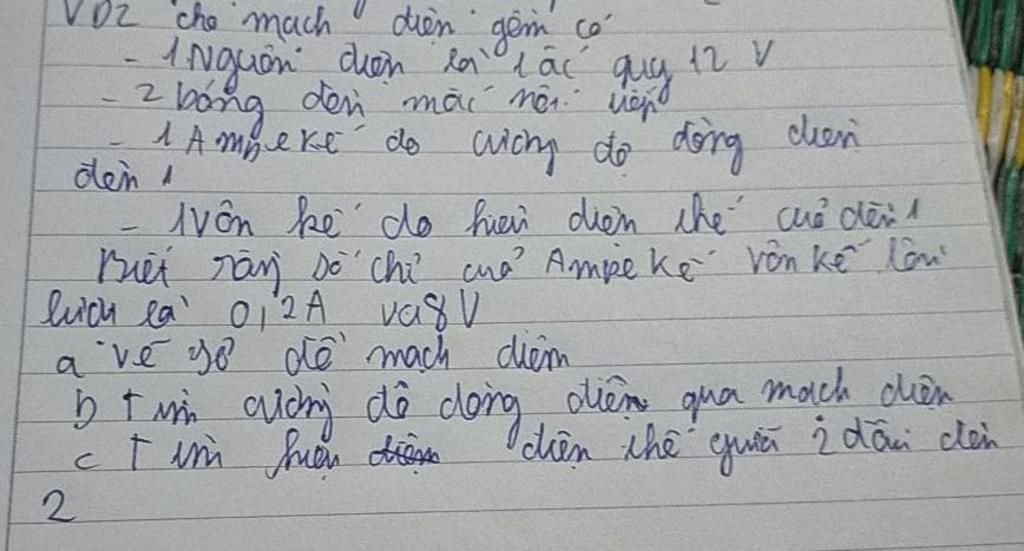 VD2 cho mạch điện gồm có
- 1 Nguồn điện là 1 ắc quy 12 V
- 2 bóng đèn mắc nối tiếp
- 1 Ampe kế đo cường độ dòng điện
đèn 1
- 1 vôn kế đo hiệu điện thế của đèn 1
Biết rằng số chỉ của Ampe kế vôn kế lần
lượt là 0,2A và 8V
a vẽ sơ đồ mạch điện
b Tìm cường độ dòng điện qua mạch điện
c Tìm hiệu điện thế giữa 2 đầu đèn
2